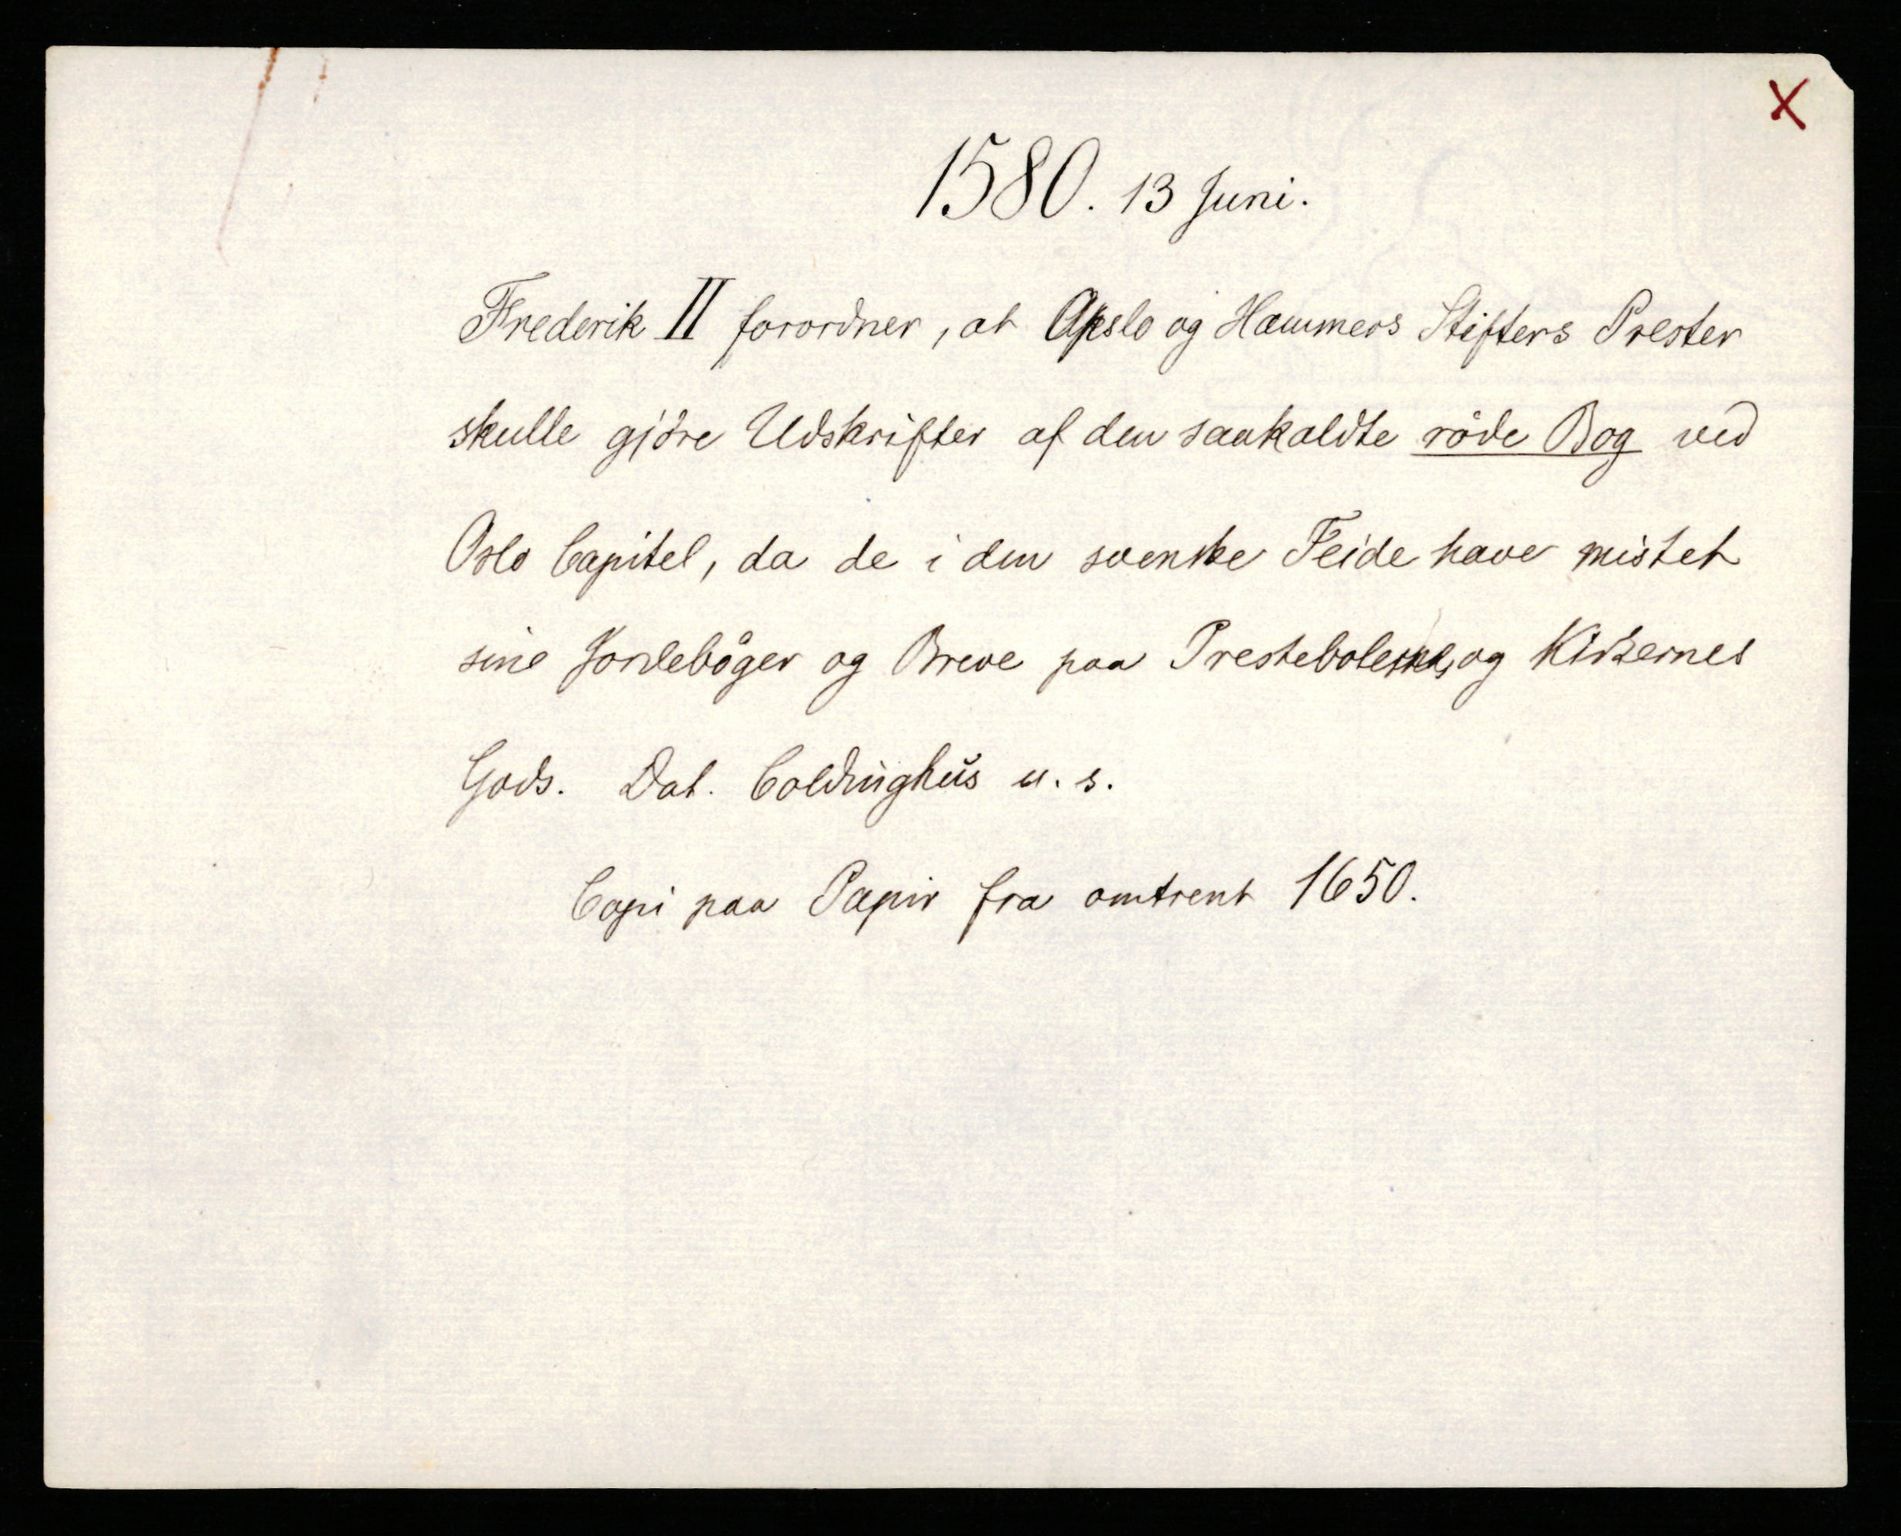 X
1580. 13 Juni.
Frederik II forordner, at Opslo og Hammers Stifters Prester
skulle gjöre Udskrifter af den saakaldte röde Bog ved
Oslo Capitel, da de i den svenske Feide have mistet
sine Jordebøger og Breve paa Prestebolenes og Kirkernes
Gods. Dat. Coldinghus u. s.
Copi paa Papir fra omtrent 1650.